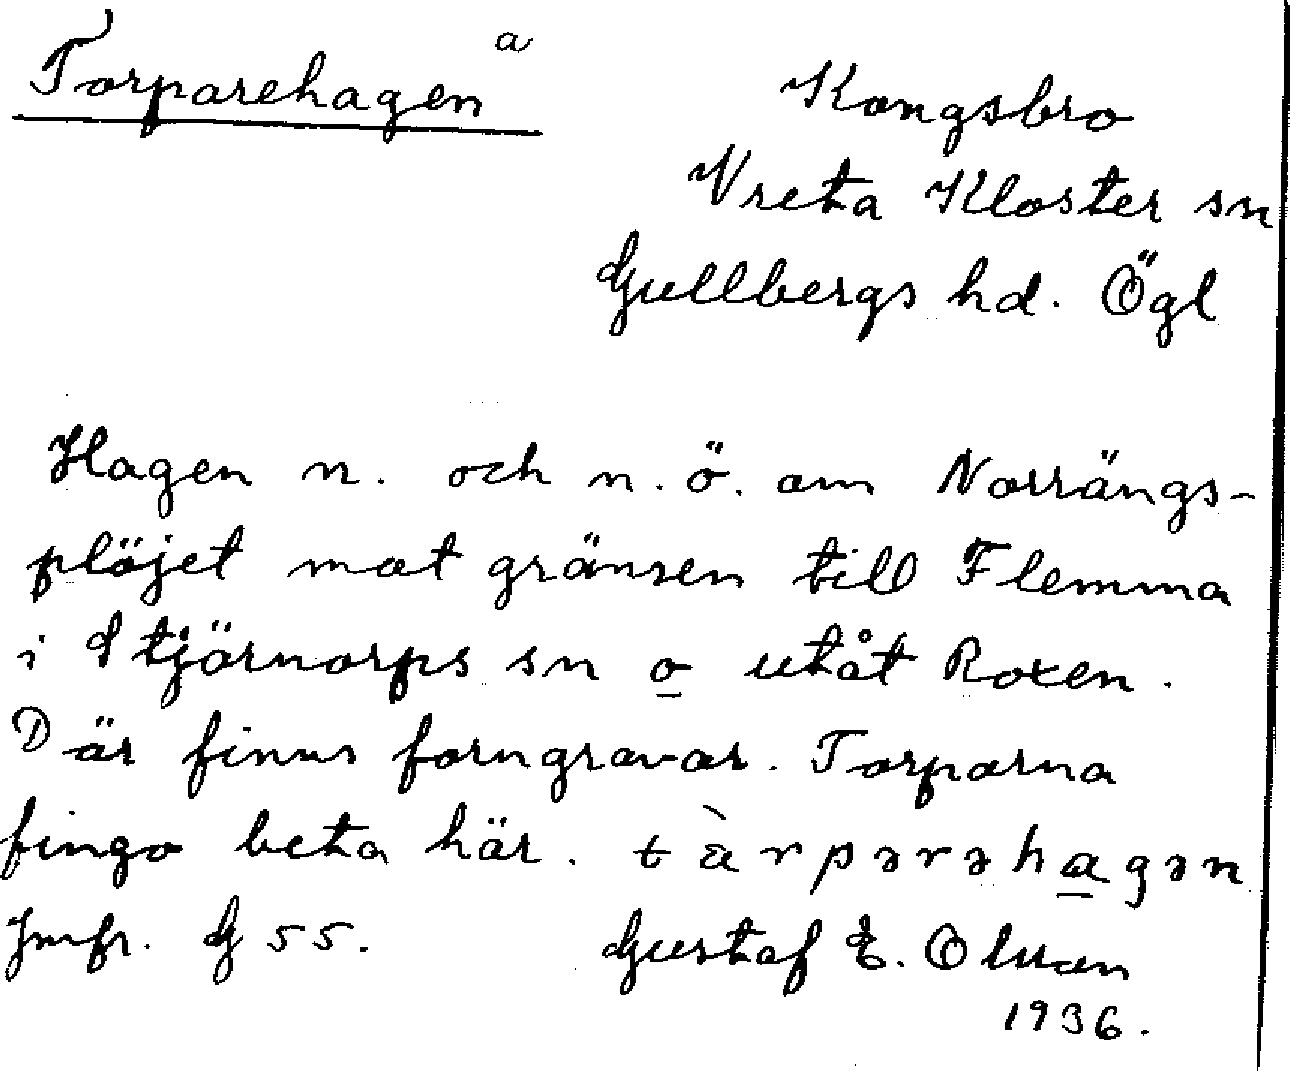 Torparehagen a
Kongsbro
Vreta Kloster sn
Gullbergs hd. Ögl
Hagen n. och n.ö. om Norrängs-
plöjet mot gränsen till Flemma
i Stjärnorps sn o utåt Roxen.
Där finns forngravar. Torparna
fingo beta här. tàrpərəhagən
Jmfr. G 55.
Gustaf E. Olsson
1936.